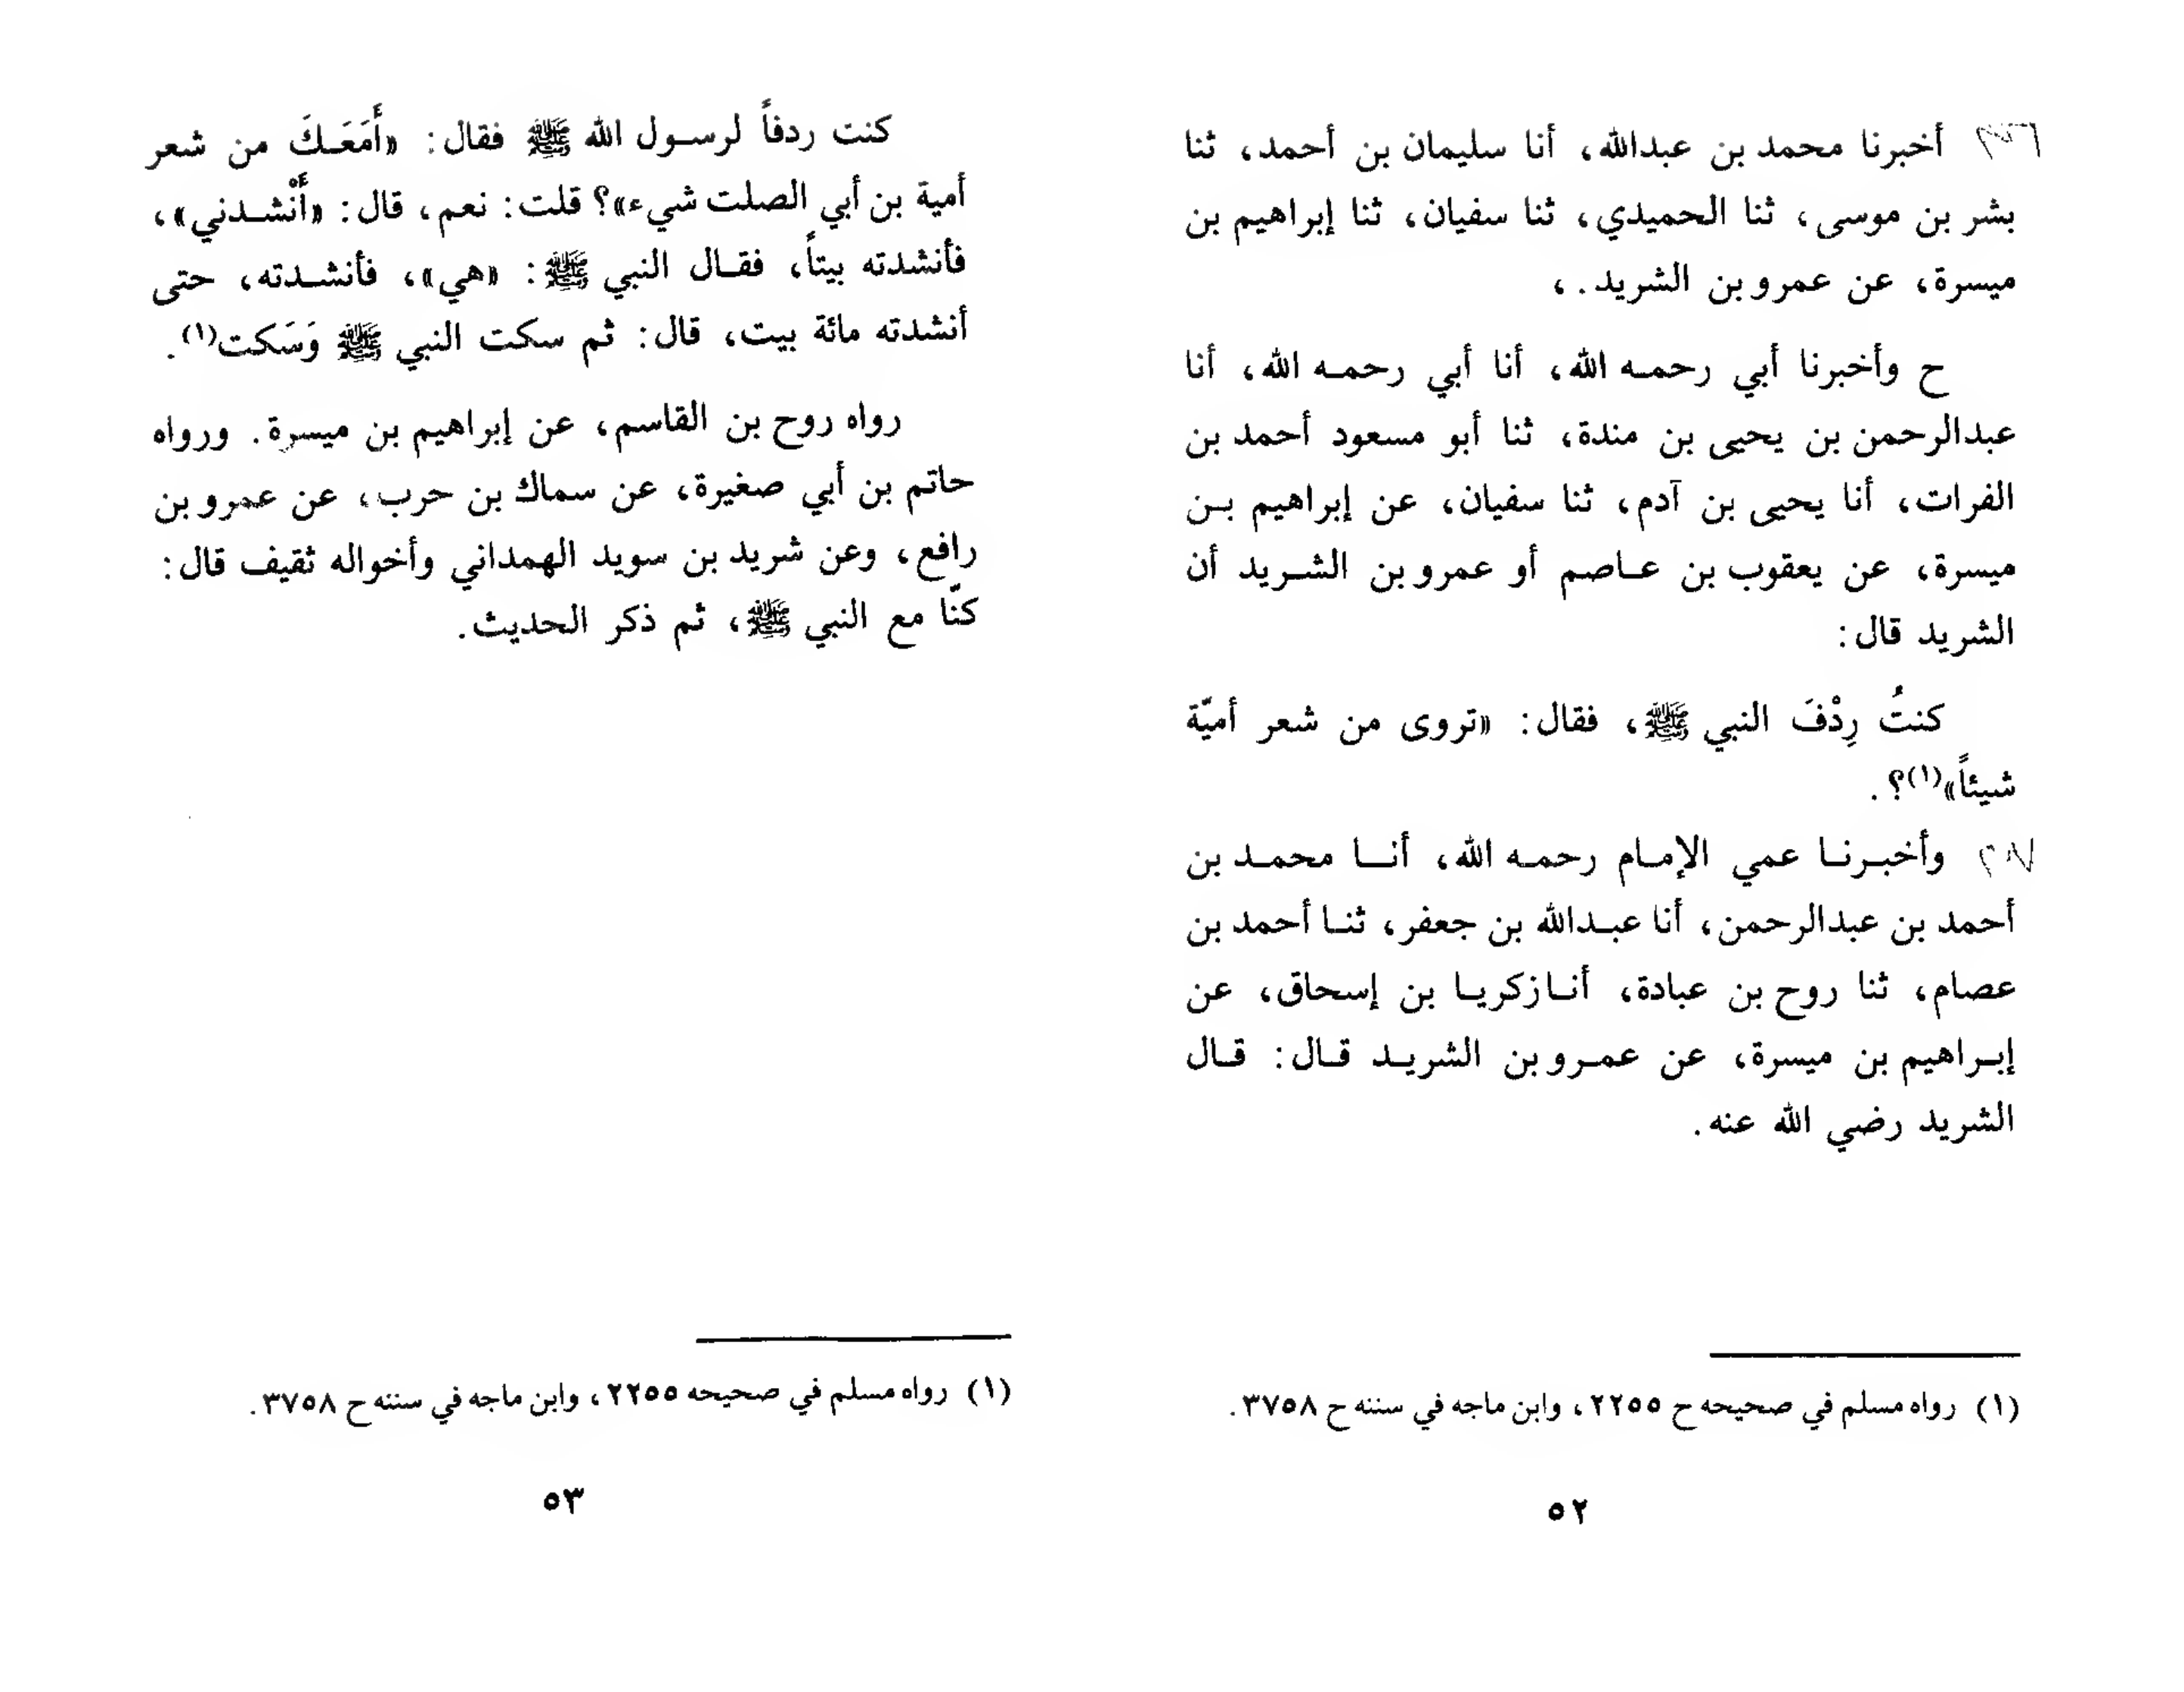 أخبرنا محمد بن عبدالله، أنا سليمان بن أحمد، ثنا
بشر بن موسى، ثنا الحميدي، ثنا سفيان، ثنا إبراهيم بن
ميسرة، عن عمرو بن الشريد. ،
ح وأخبرنا أبي رحمه الله، أنا أبي رحمه الله، أنا
عبدالرحمن بن يحيى بن مندة، ثنا أبو مسعود أحمد بن
الفرات، أنا يحيى بن آدم، ثنا سفيان، عن إبراهيم بن
ميسرة، عن يعقوب بن عاصم أو عمرو بن الشريد أن
الشريد قال:
كنتُ رِدْفَ النبي ﷺ، فقال: «تروى من شعر أميّة
شيئاً»(١)؟.
وأخبرنا عمي الإمام رحمه الله، أنا محمد بن
أحمد بن عبدالرحمن، أنا عبدالله بن جعفر، ثنا أحمد بن
عصام، ثنا روح بن عبادة، أنا زكريا بن إسحاق، عن
إبراهيم بن ميسرة، عن عمرو بن الشريد قال: قال
الشريد رضي الله عنه.
(١) رواه مسلم في صحيحه ح ٢٢٥٥، وابن ماجه في سننه ح ٣٧٥٨.
٥٢
كنت ردفاً لرسول الله ﷺ فقال: «أَمَعَكَ من شعر
أمية بن أبي الصلت شيء»؟ قلت: نعم، قال: «أَنْشدني»،
فأنشدته بيتاً، فقال النبي ﷺ: «هي»، فأنشدته، حتى
أنشدته مائة بيت، قال: ثم سكت النبي ﷺ وَسَكت(١).
رواه روح بن القاسم، عن إبراهيم بن ميسرة. ورواه
حاتم بن أبي صغيرة، عن سماك بن حرب، عن عمرو بن
رافع، وعن شريد بن سويد الهمداني وأخواله ثقيف قال:
كنّا مع النبي ﷺ، ثم ذكر الحديث.
(١) رواه مسلم في صحيحه ٢٢٥٥، وابن ماجه في سننه ح ٣٧٥٨.
٥٣